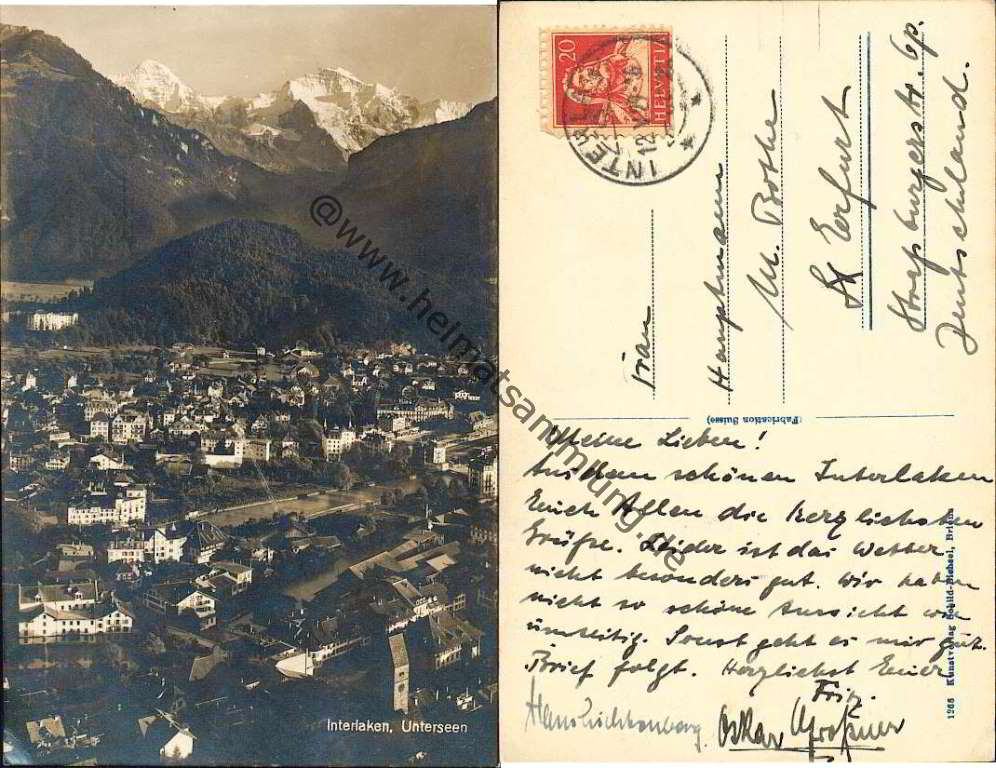 Interlaken, Unterseen
@www.heimatsammlung.de
20
HELVETIA
INTER
Frau
Hauptmann
M. Bothe
Erfurt
Strassburgerstr. 6p.
Deutschland.
(Fabrication Suisse)
Meine Lieben!
Aus dem schönen Interlaken
Euch Allen die herzlichsten
Grüße. Leider ist das Wetter
nicht besonders gut. Wir haben
nicht so schöne Aussicht wie
umseitig. Sonst geht es mir gut.
Brief folgt. Herzlichst Euer
Fritz.
Hans Lichtenberg
Oskar Großner
1266 Kunstverlag Schild-Bichsel, Brienz